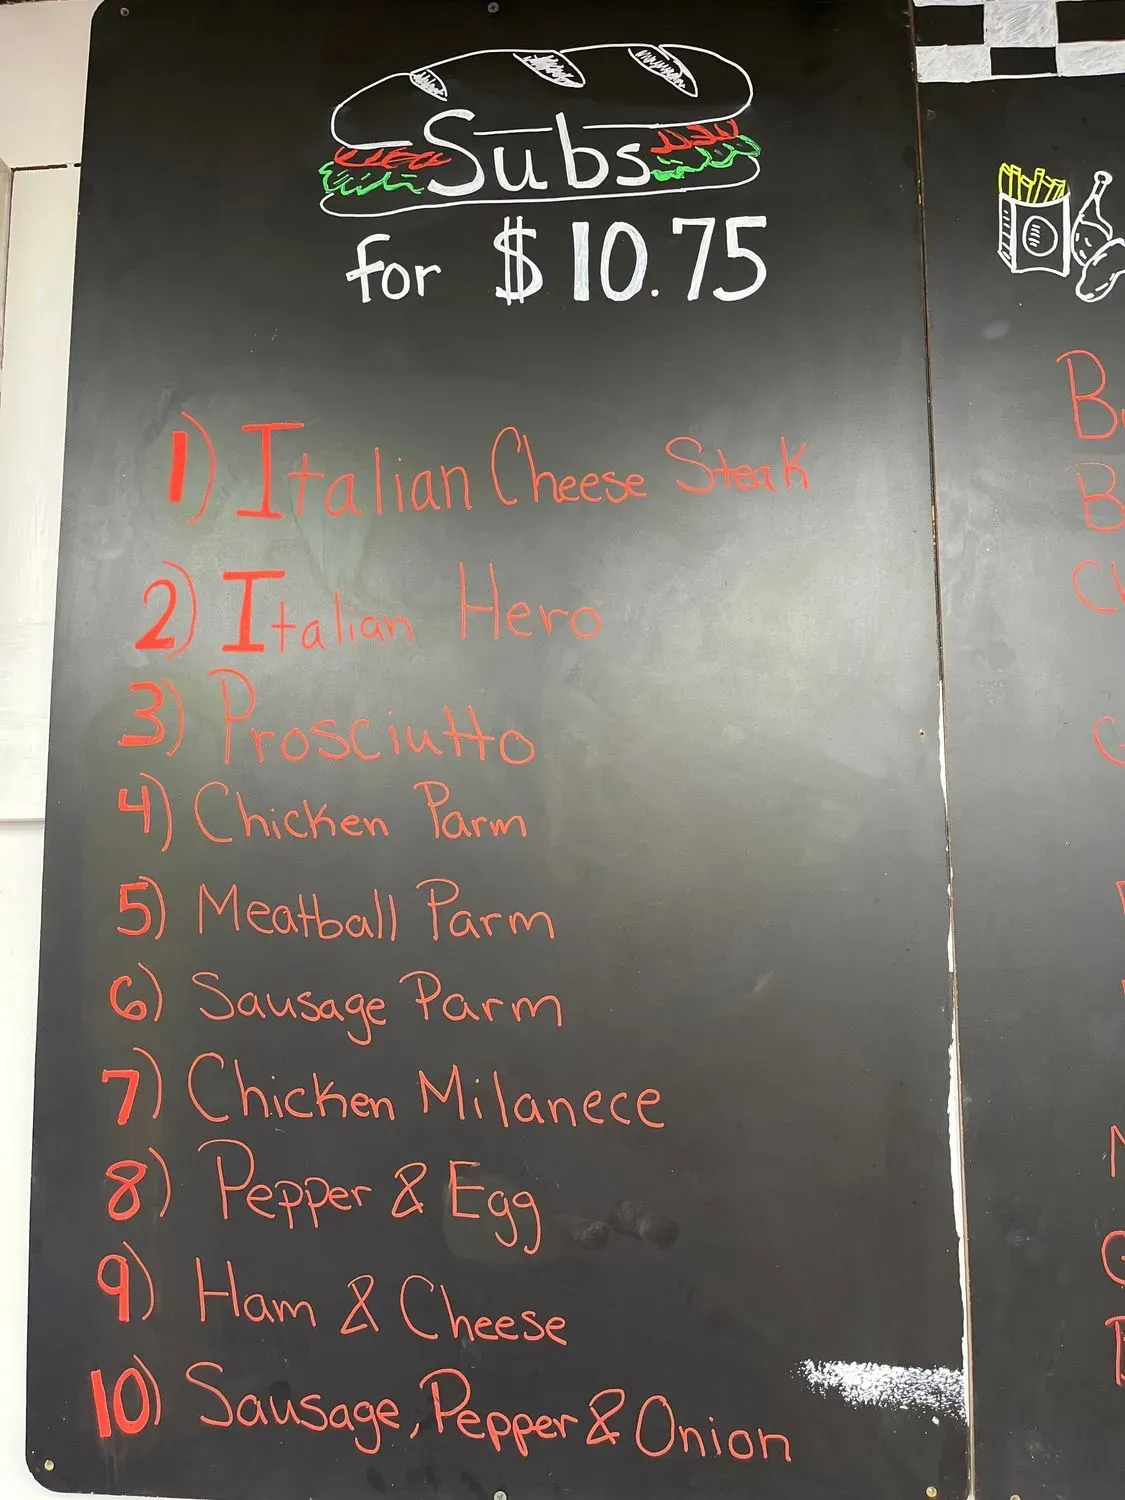 Subs
for $10.75
1) Italian Cheese Steak
2) Italian Hero
3) Prosciutto
4) Chicken Parm
5) Meatball Parm
6) Sausage Parm
7) Chicken Milanece
8) Pepper & Egg
9) Ham & Cheese
10) Sausage, Pepper & Onion